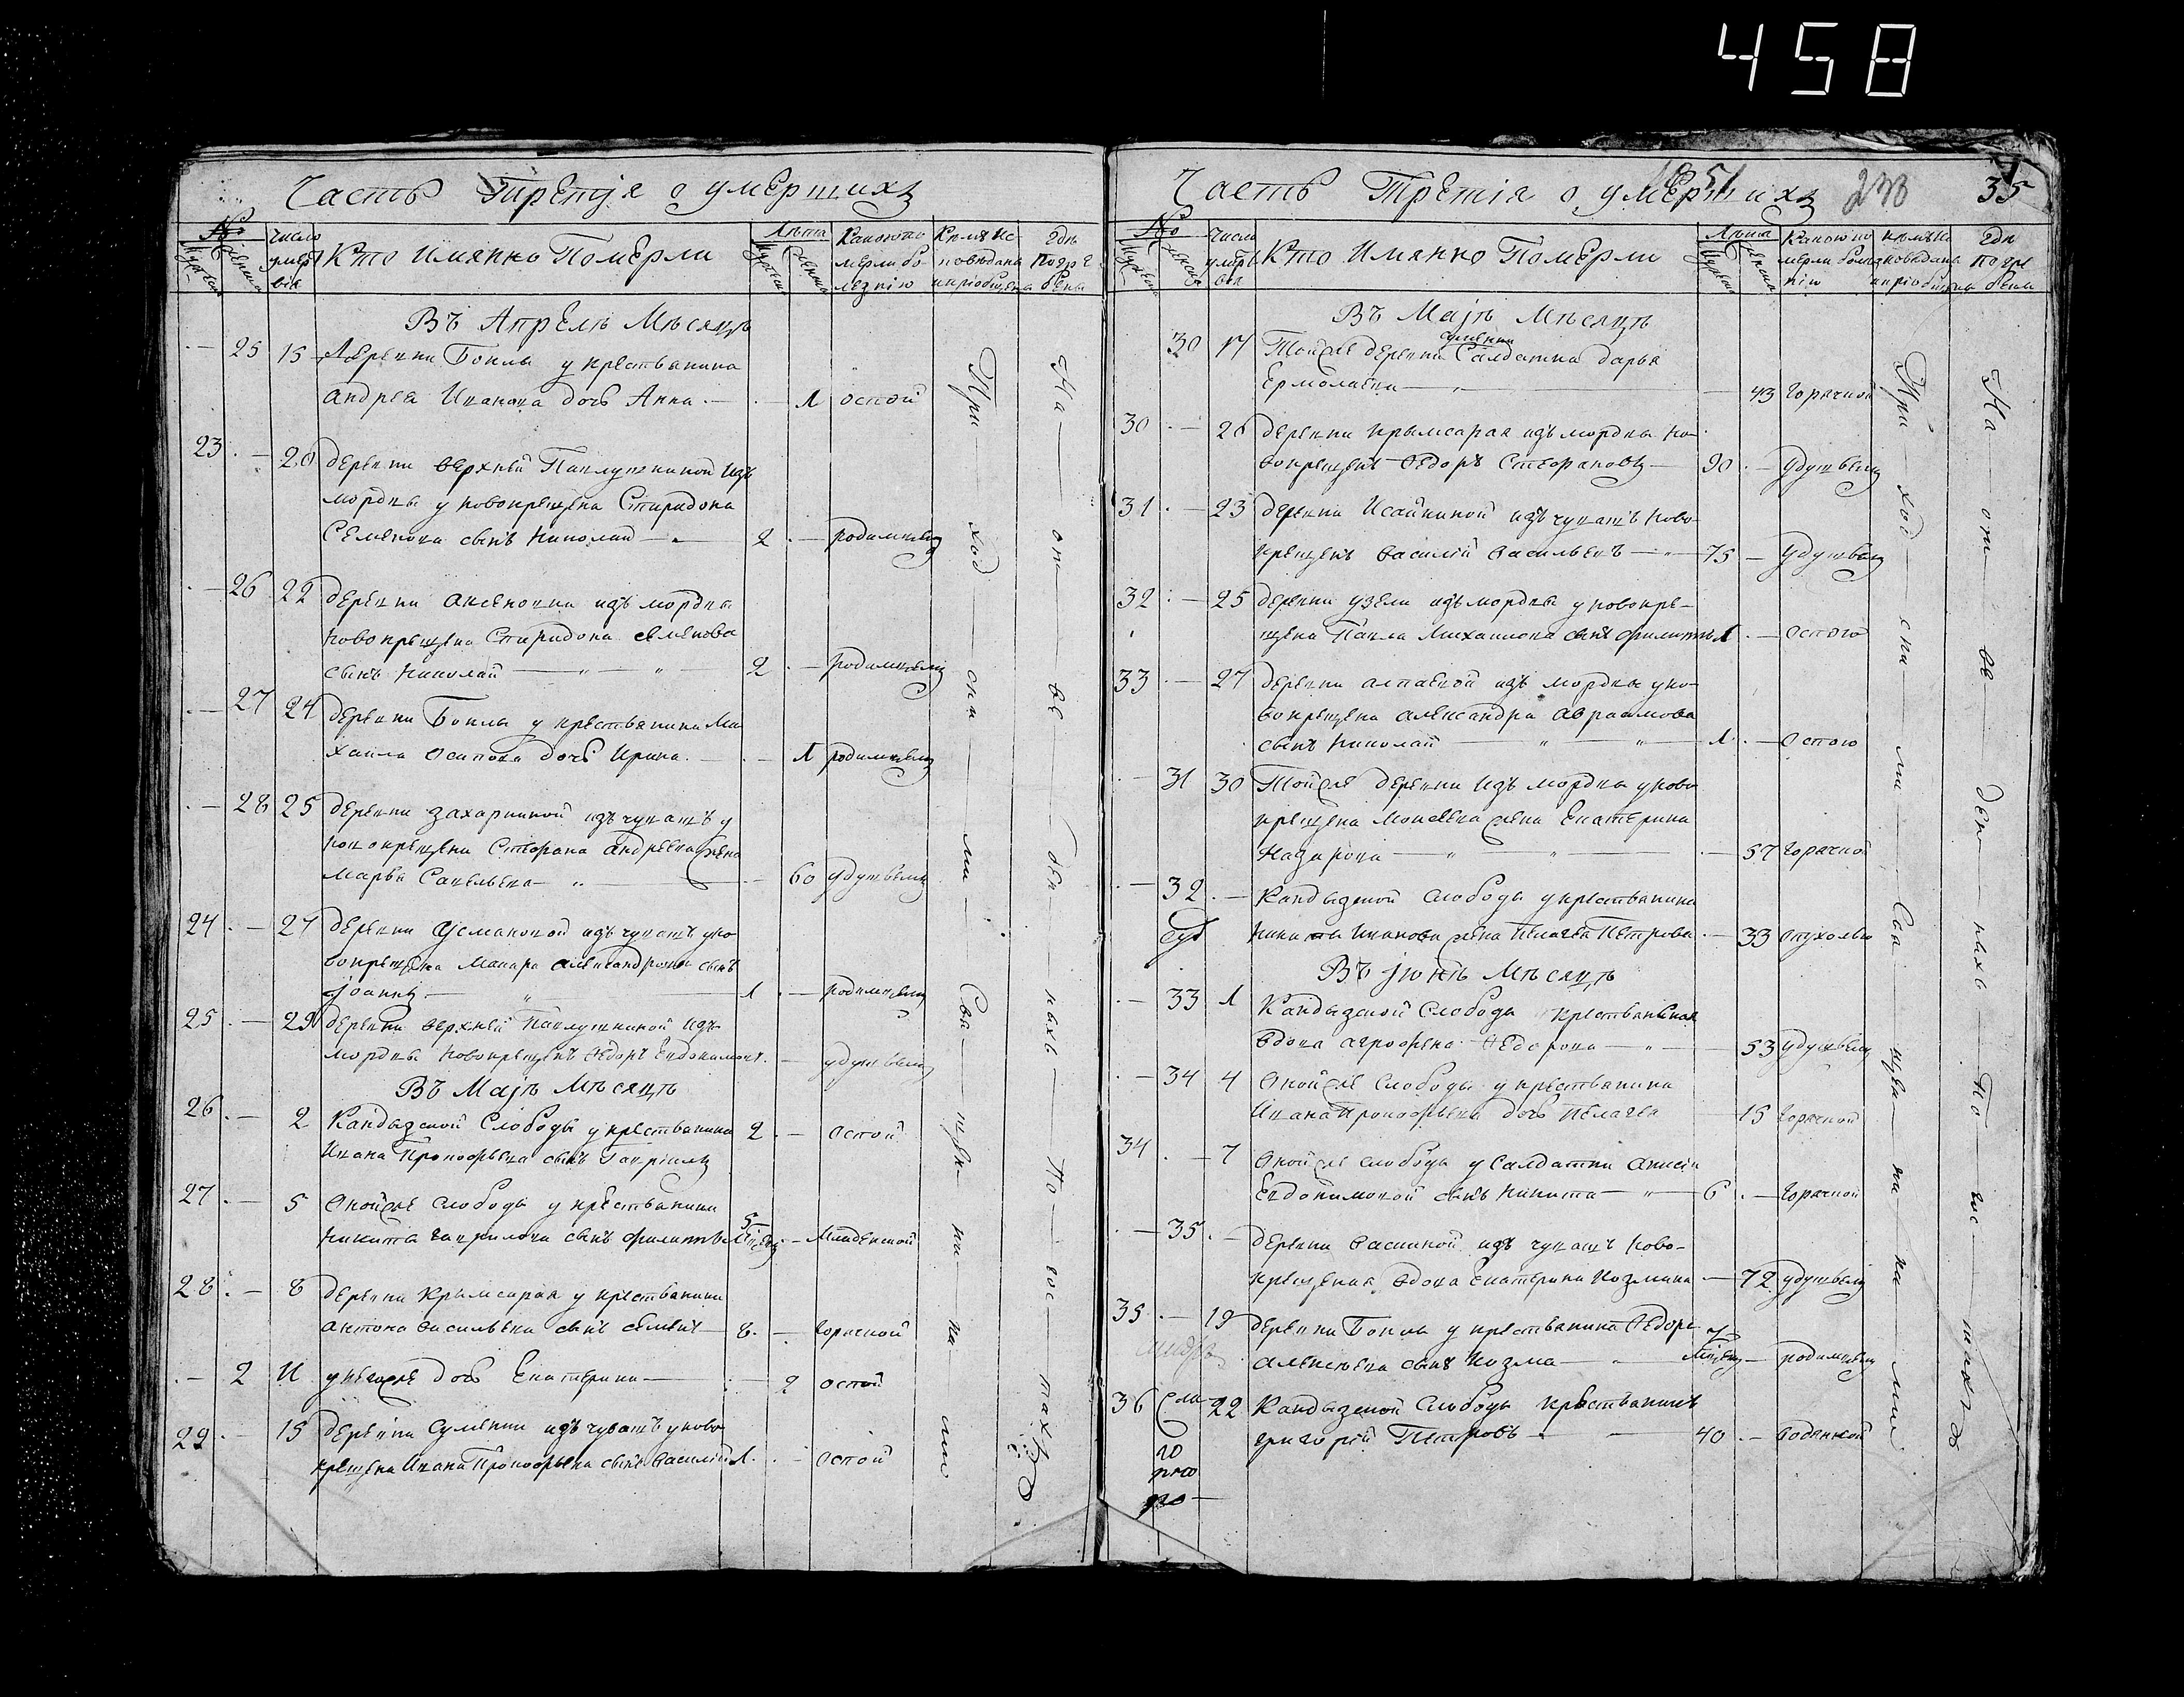 458
Часть Третjя о умерших
№
Мужеска
Женска
Число
умер
вiя
Кто Имянно Померли
Лѣта
Мужеска
Женска
Какою по
мерли бо
лезнiю
Кѣмъ Ис
повѣданы
и прiобщены
Гдѣ
Погре
бены
Въ Апрелѣ Мѣсяцѣ
25 15 Деревни Боклы у крестьянина
Андрея Иванова дочь Анна 1 оспой
23 20 деревни верхней Павлушкиной изъ
мордвы у новокрещена Спиридона
Семенова сынъ Николай 2 родимцемъ
26 22 деревни Аксеновки изъ мордвы
новокрещена Спиридона Семенова
сынъ Николай 2 родимцемъ
27 24 деревни Боклы у крестьянина Ми
хаила Осипова дочь Ирина 1 родимцемъ
28 25 деревни Захаркиной изъ чувашъ у
новокрещена Стефана Андреева жена
Марья Савельева 60 удушьемъ
24 27 деревни Усмановой изъ чувашъ у но
вокрещена Макара Александрова сынъ
Iоаннъ 1 родимцемъ
25 29 деревни верхней Павлушкиной изъ
мордвы новокрещенъ Федоръ Евдокимовъ удушьемъ
Въ Маjѣ Мѣсяцѣ
26 2 Кандызской Слободы у крестьянина 2 оспой
Ивана Прокофьева сынъ Гаврiилъ
27 5 Оной же слободы у крестьянина
Никиты Гаврилова сынъ Филиппъ 5 Младенской
28 8 деревни Крымсарая у крестьянина
Антона Васильева сынъ Семенъ 8 горячкой
2 11 у него же дочь Екатерина 2 оспой
29 15 деревни Сулейки изъ чувашъ у ново
крещена Ивана Прокофьева сынъ Василiй 1 оспой
При ход ски ми Свя щен ни ка ми
На от ве ден ныхъ По гос тахъ
Часть Третiя о умерших
233
35
№
Мужеска
Женска
Число
умер
вiя
Кто Имянно Померли
Лѣта
Мужеска
Женска
Какою по
мерли болез
нiю
Кѣмъ Ис
повѣданы
и прiобщены
Гдѣ
Погре
бены
Въ Маjѣ Мѣсяцѣ
30 17 Той же деревни Салдатка Дарья
Ермолаева 43 Горячкой
30 20 деревни Крымсарая изъ мордвы но
вокрещенъ Федоръ Стефановъ 90 Удушьемъ
31 23 деревни Исайкиной изъ чувашъ ново
крещенъ Василiй Васильевъ 75 Удушьемъ
32 25 деревни Узели изъ мордвы у новокре
щена Павла Михаилова сынъ Филиппъ 1 оспою
33 27 деревни Алпаевой изъ мордвы у но
вокрещена Александра Авраамова
сынъ Николай 1 оспою
31 30 Той же деревни Изъ мордвы у ново
крещена Моисеева жена Екатерина
Назарова 57 Горячкой
32 Кандызской слободы у крестьянина
Никиты Иванова жена Пелагея Петрова 33 опухолью
Въ jюнѣ Мѣсяцѣ
33 1 Кандызской Слободы крестьянская
вдова Агрофена Федорова 53 удушьемъ
34 4 Оной же слободы у крестьянина
Ивана Прокофьева дочь Пелагея 15 горячкой
34 7 Оной же слободы у салдатки Анисiи
Евдокимовой сынъ Никита 6 Горячкой
35 деревни Васькиной изъ чувашъ ново
крещеная вдова Екатерина Козмина 72 удушьемъ
35 19 деревни Боклы у крестьянина Федора 7
Алексеева сынъ Козма родимцемъ
36 22 Кандызской слободы крестьянинъ
григорiй Петровъ 40 водянкой
При ход ски ми Свя щен ни ка ми
На от ве ден ныхъ По гос тахъ